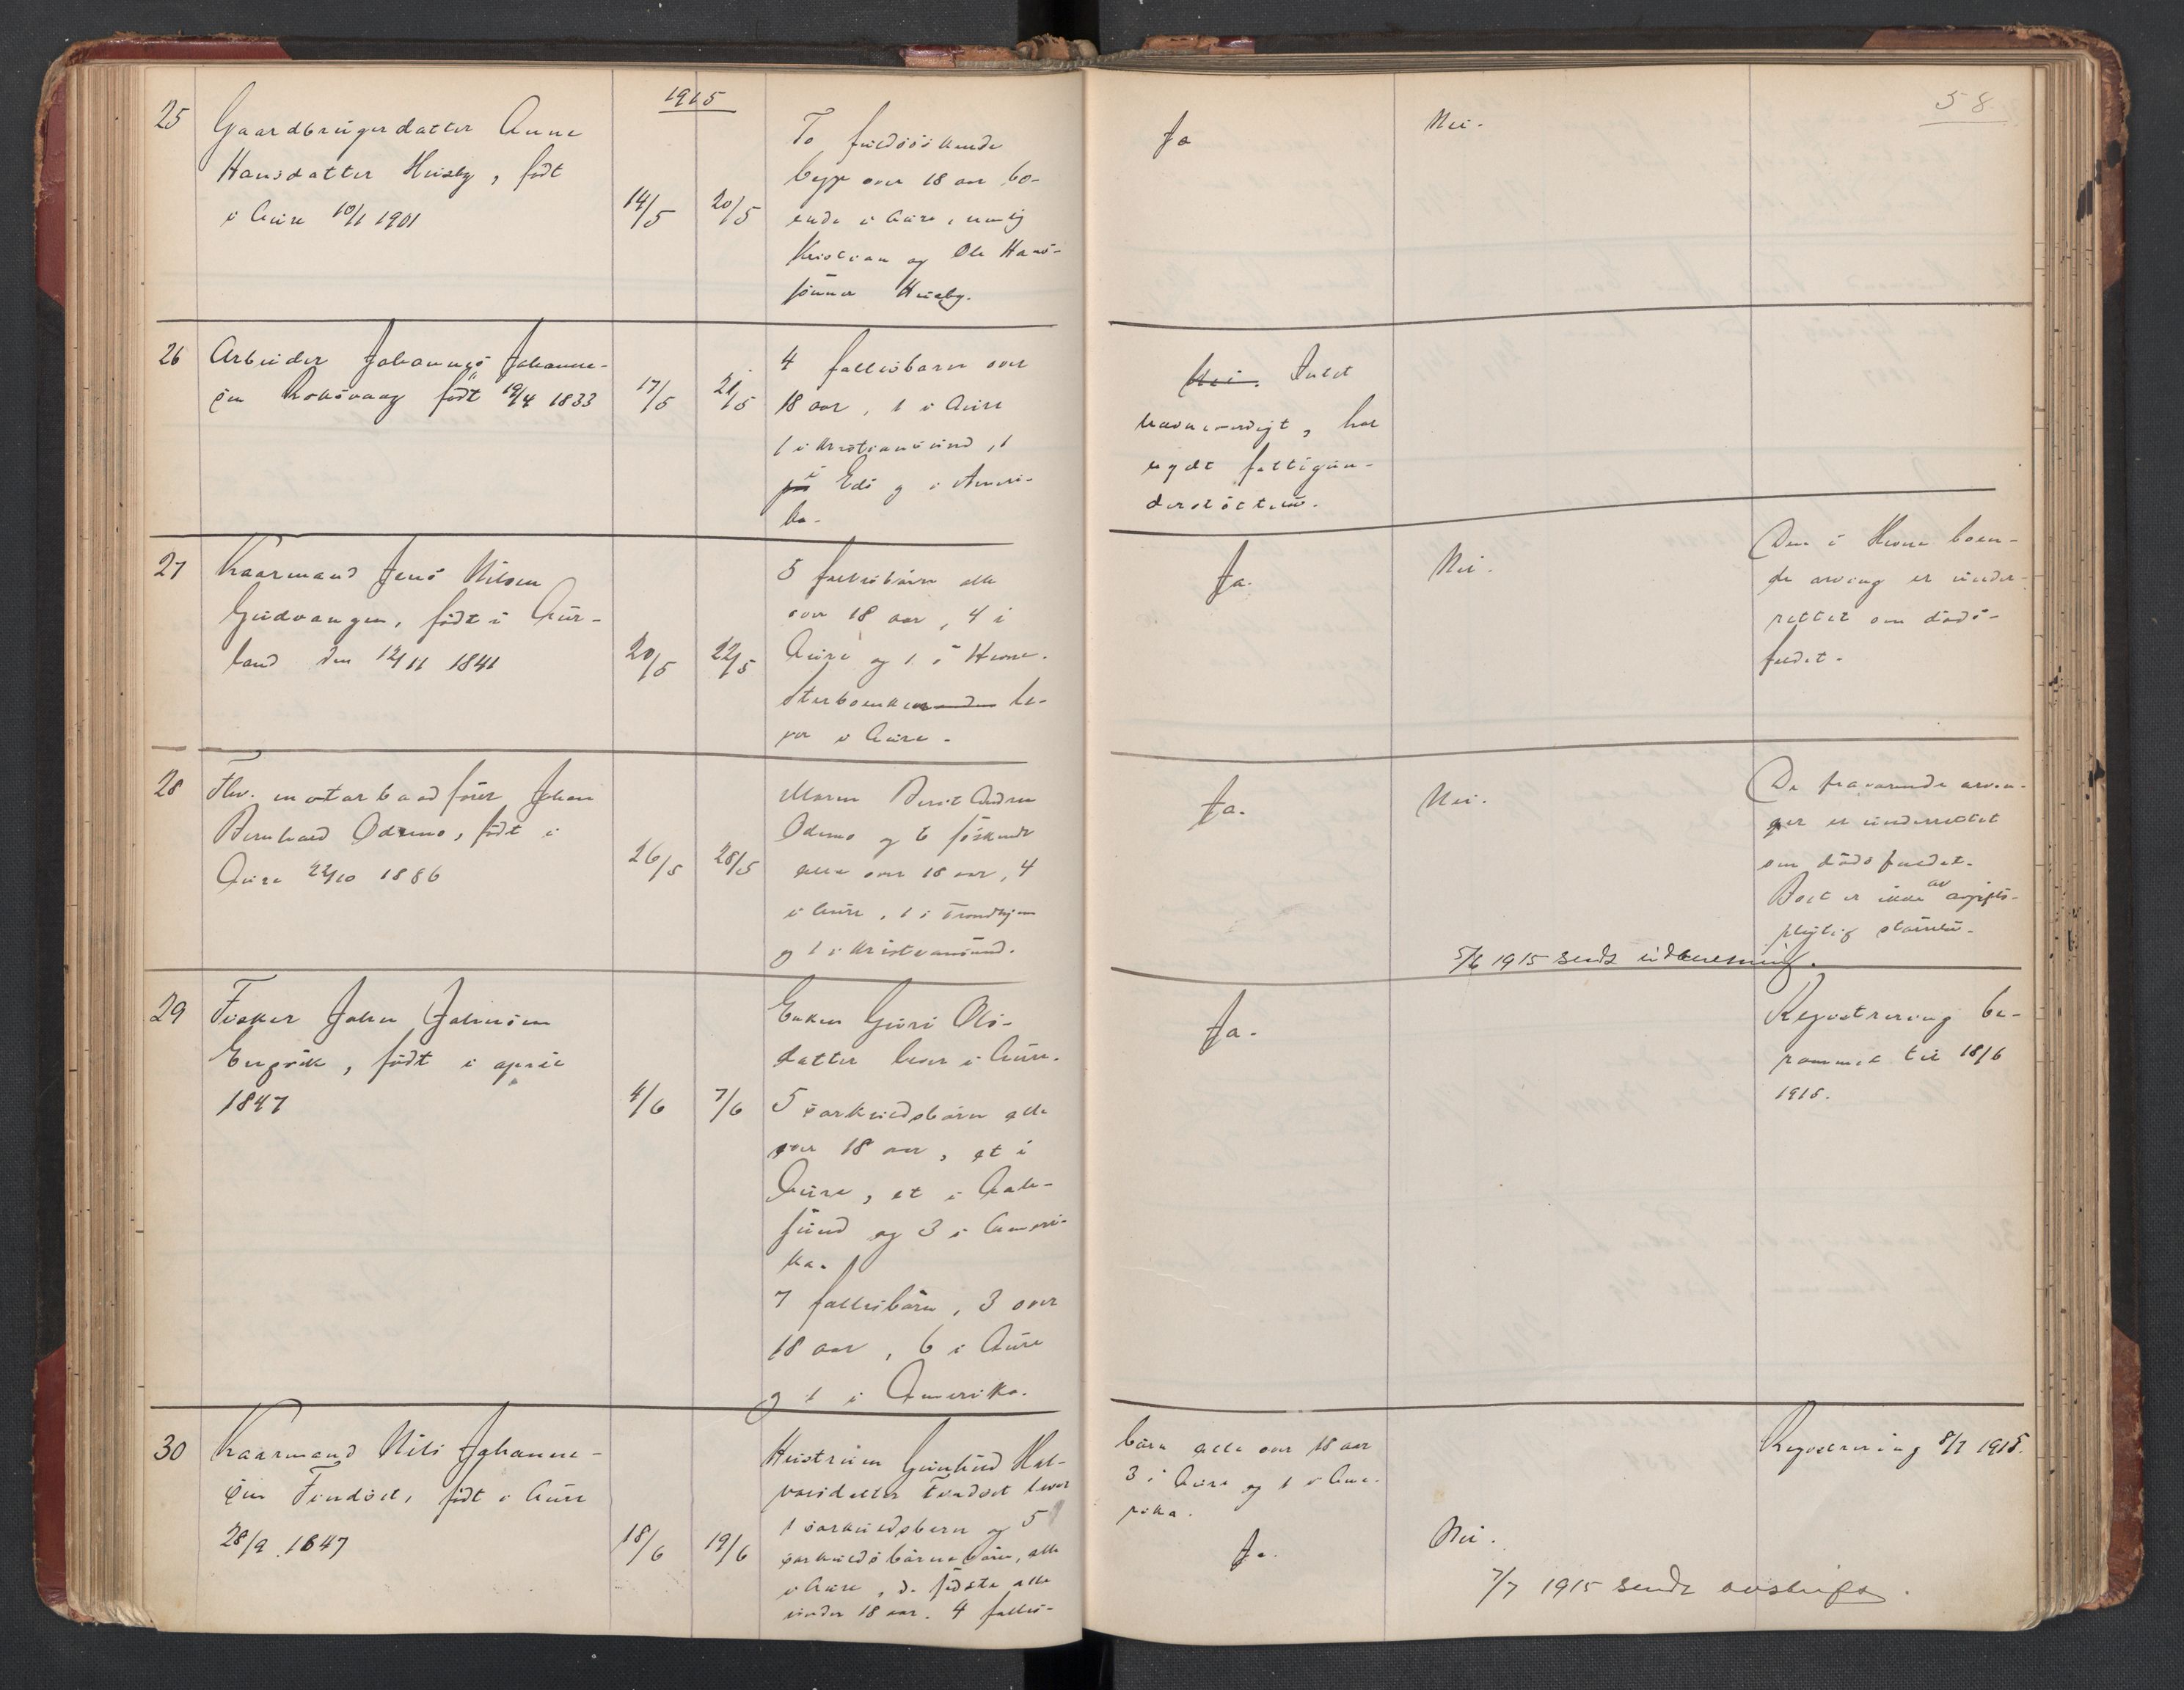 1915
58
25
Gaardbrugerdatter Anne
Hansdatter Husby, født
i Aure 10/1 1901
14/5
20/5
To fuldsøskende
begge over 18 aar bo-
ende i Aure, nemlig
Kristian og Ole Hans-
sønner Husby.
Ja
Nei.
26
Arbeider Johannes Johanne-
sen Roksvaag født 19/4 1833
17/5
21/5
4 fællesbarn over
18 aar, 1 i Aure
1 i Kristiansund, 1
paa i Edø og i Ameri-
ka.
Nei. Intet
navneværdigt, har
nydt fattigun-
derstøttelse.
27
Kaarmand Jens Nilsen
Gudvangen, født i Aur-
land den 12/11 1841
20/5
22/5
5 fællesbørn alle
over 18 aar, 4 i
Aure og 1 i Hevne.
Sterboenken le-
ver i Aure.
Ja.
Nei.
Den i Hevne boen-
de arving er under-
rettet om døds-
faldet.
28
Fhv. motorbaadfører Johan
Bernhard Ødemo, født i
Aure 22/10 1886
26/5
28/5
Moren Beret Andrea
Ødemo og 6 søskende
alle over 18 aar, 4
i Aure, 1 i Trondhjem
og 1 i Kristiansund.
Ja.
Nei.
De fraværende arvin-
ger er underrettet
om dødsfaldet.
Boet er ikke av avgifts-
pligtig størrelse.
5/6 1915 sendt indberetning.
29
Fisker John Johnsen
Engvik, født i april
1847
4/6
7/6
Enken Guri Ols-
datter lever i Aure.
5 særkuldsbørn alle
over 18 aar, et i
Aure, et i Aale-
sund og 3 i Ameri-
ka.
7 fællesbørn, 3 over
18 aar, 6 i Aure
og 1 i Amerika.
Ja.
Registrering be-
rammet til 18/6
1915.
30
Kaarmand Nils Johanne-
sen Findset, født i Aure
28/9 1847
18/6
19/6
Hustruen Gunhild Hal-
vorsdatter Findset lever
1 særkuldsbarn og 5
særkuldsbørnebørn, alle
i Aure, de sidste alle
under 18 aar. 4 fælles-
børn alle over 18 aar
3 i Aure og 1 i Ame-
rika.
Ja.
Nei.
Registrering 8/7 1915.
7/7 1915 sendt avskift.